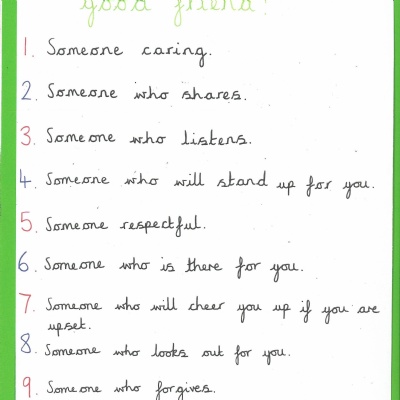 good friend!
1. Someone caring.
2. Someone who shares.
3. Someone who listens.
4. Someone who will stand up for you.
5. Someone respectful.
6. Someone who is there for you.
7. Someone who will cheer you up if you are
upset.
8. Someone who looks out for you.
9. Someone who forgives.